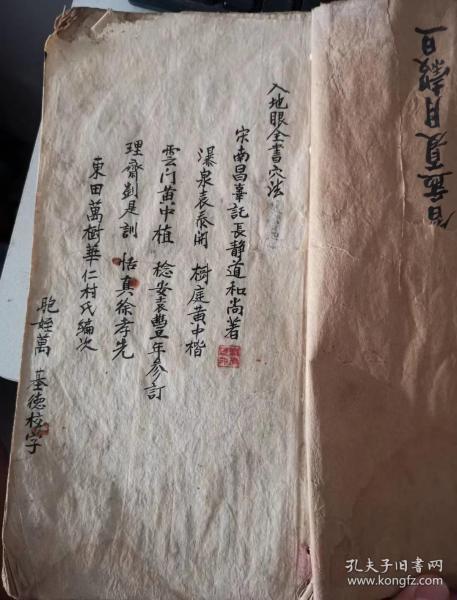 入地眼全書穴法
宋南昌辜託長靜道和尚著
瀑泉袁泰開 樹庭黃中楷
雲门黃中植 稔安袁豐年參訂
理齋劉是訓 恬真徐孝先
東田萬樹華仁村氏編次
胞姪萬 基德校字
孟夏月穀旦
孔夫子旧书网
www.kongfz.com